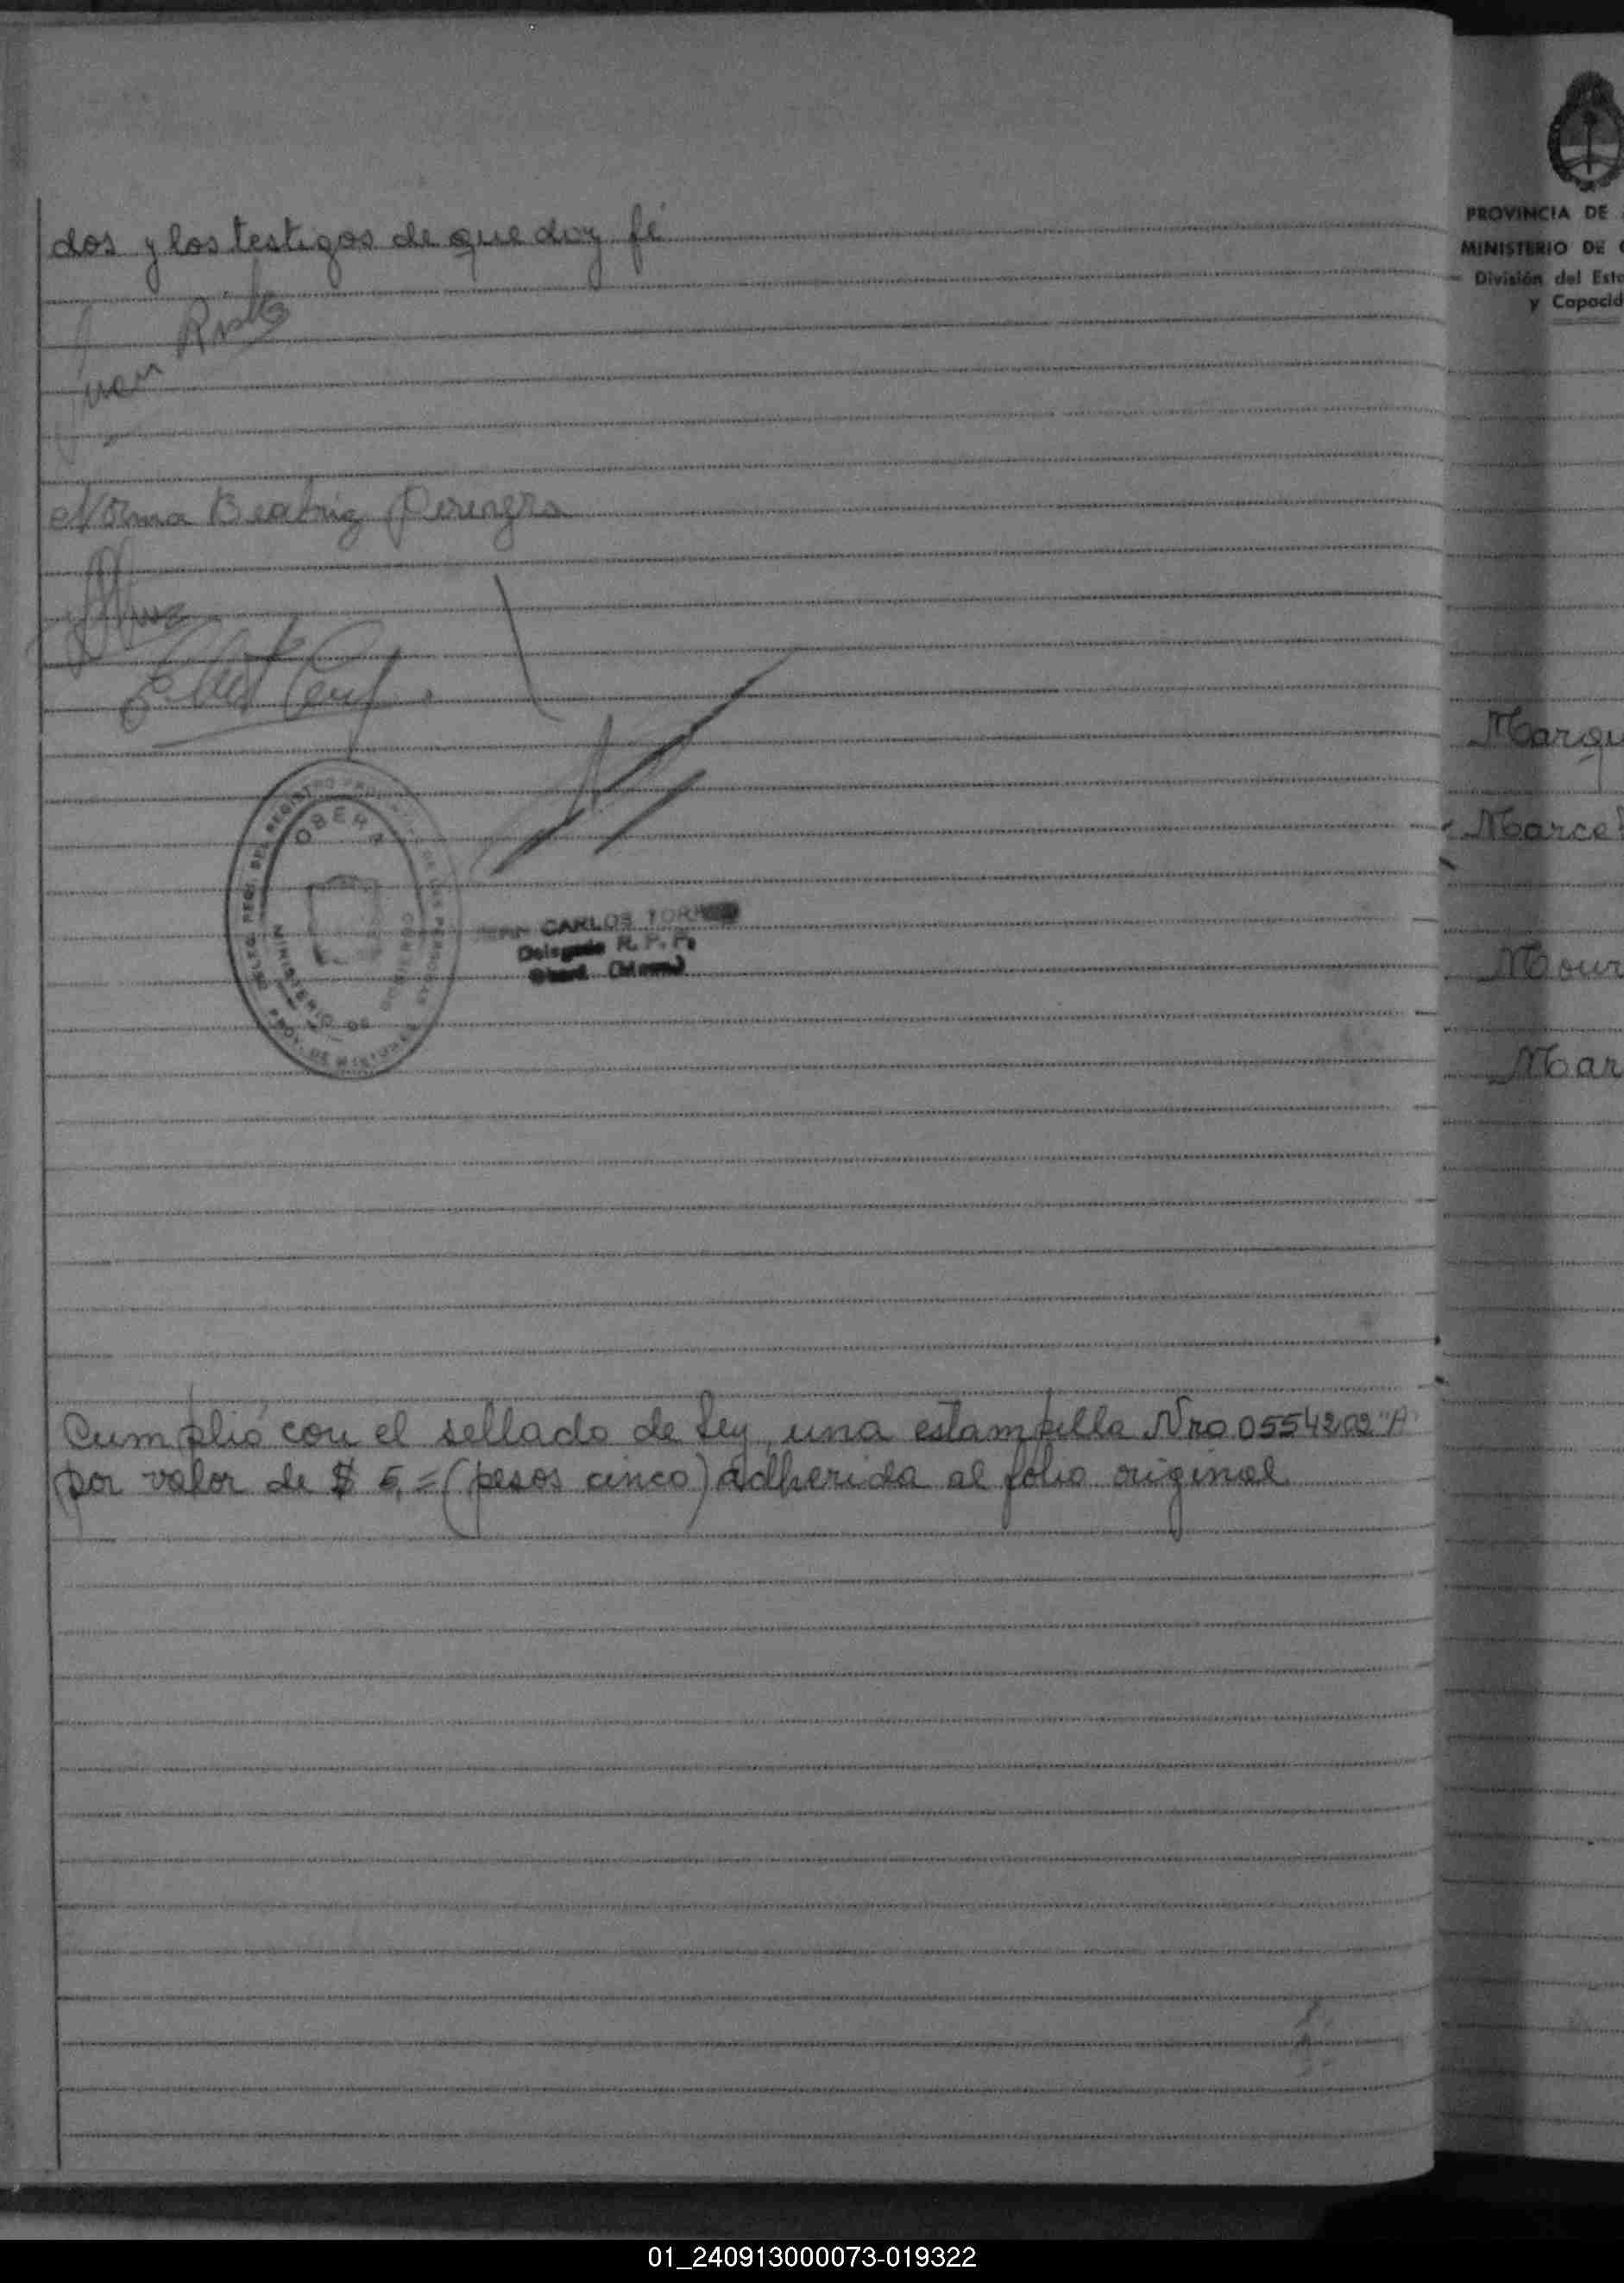 dos y los testigos de que doy fé
Juan
Norma Beatriz
OBERA
MINISTERIO DE GOBIERNO
PROV. DE MISIONES
CARLOS TORRES
Delegado R. P. P.
Cumplió con el sellado de ley, una estampilla Nro 0554202 "A"
por valor de $ 5,= (pesos cinco) adherida al folio original
PROVINCIA DE
MINISTERIO DE
División del Est
y Capacid
Marqu
Marcel
Mour
Mar
01_240913000073-019322